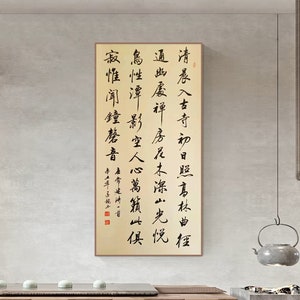 清晨入古寺初日照高林曲徑
通幽處禪房花木深山光悅
鳥性潭影空人心萬籟此俱
寂惟聞鐘磬音
唐常建詩一首